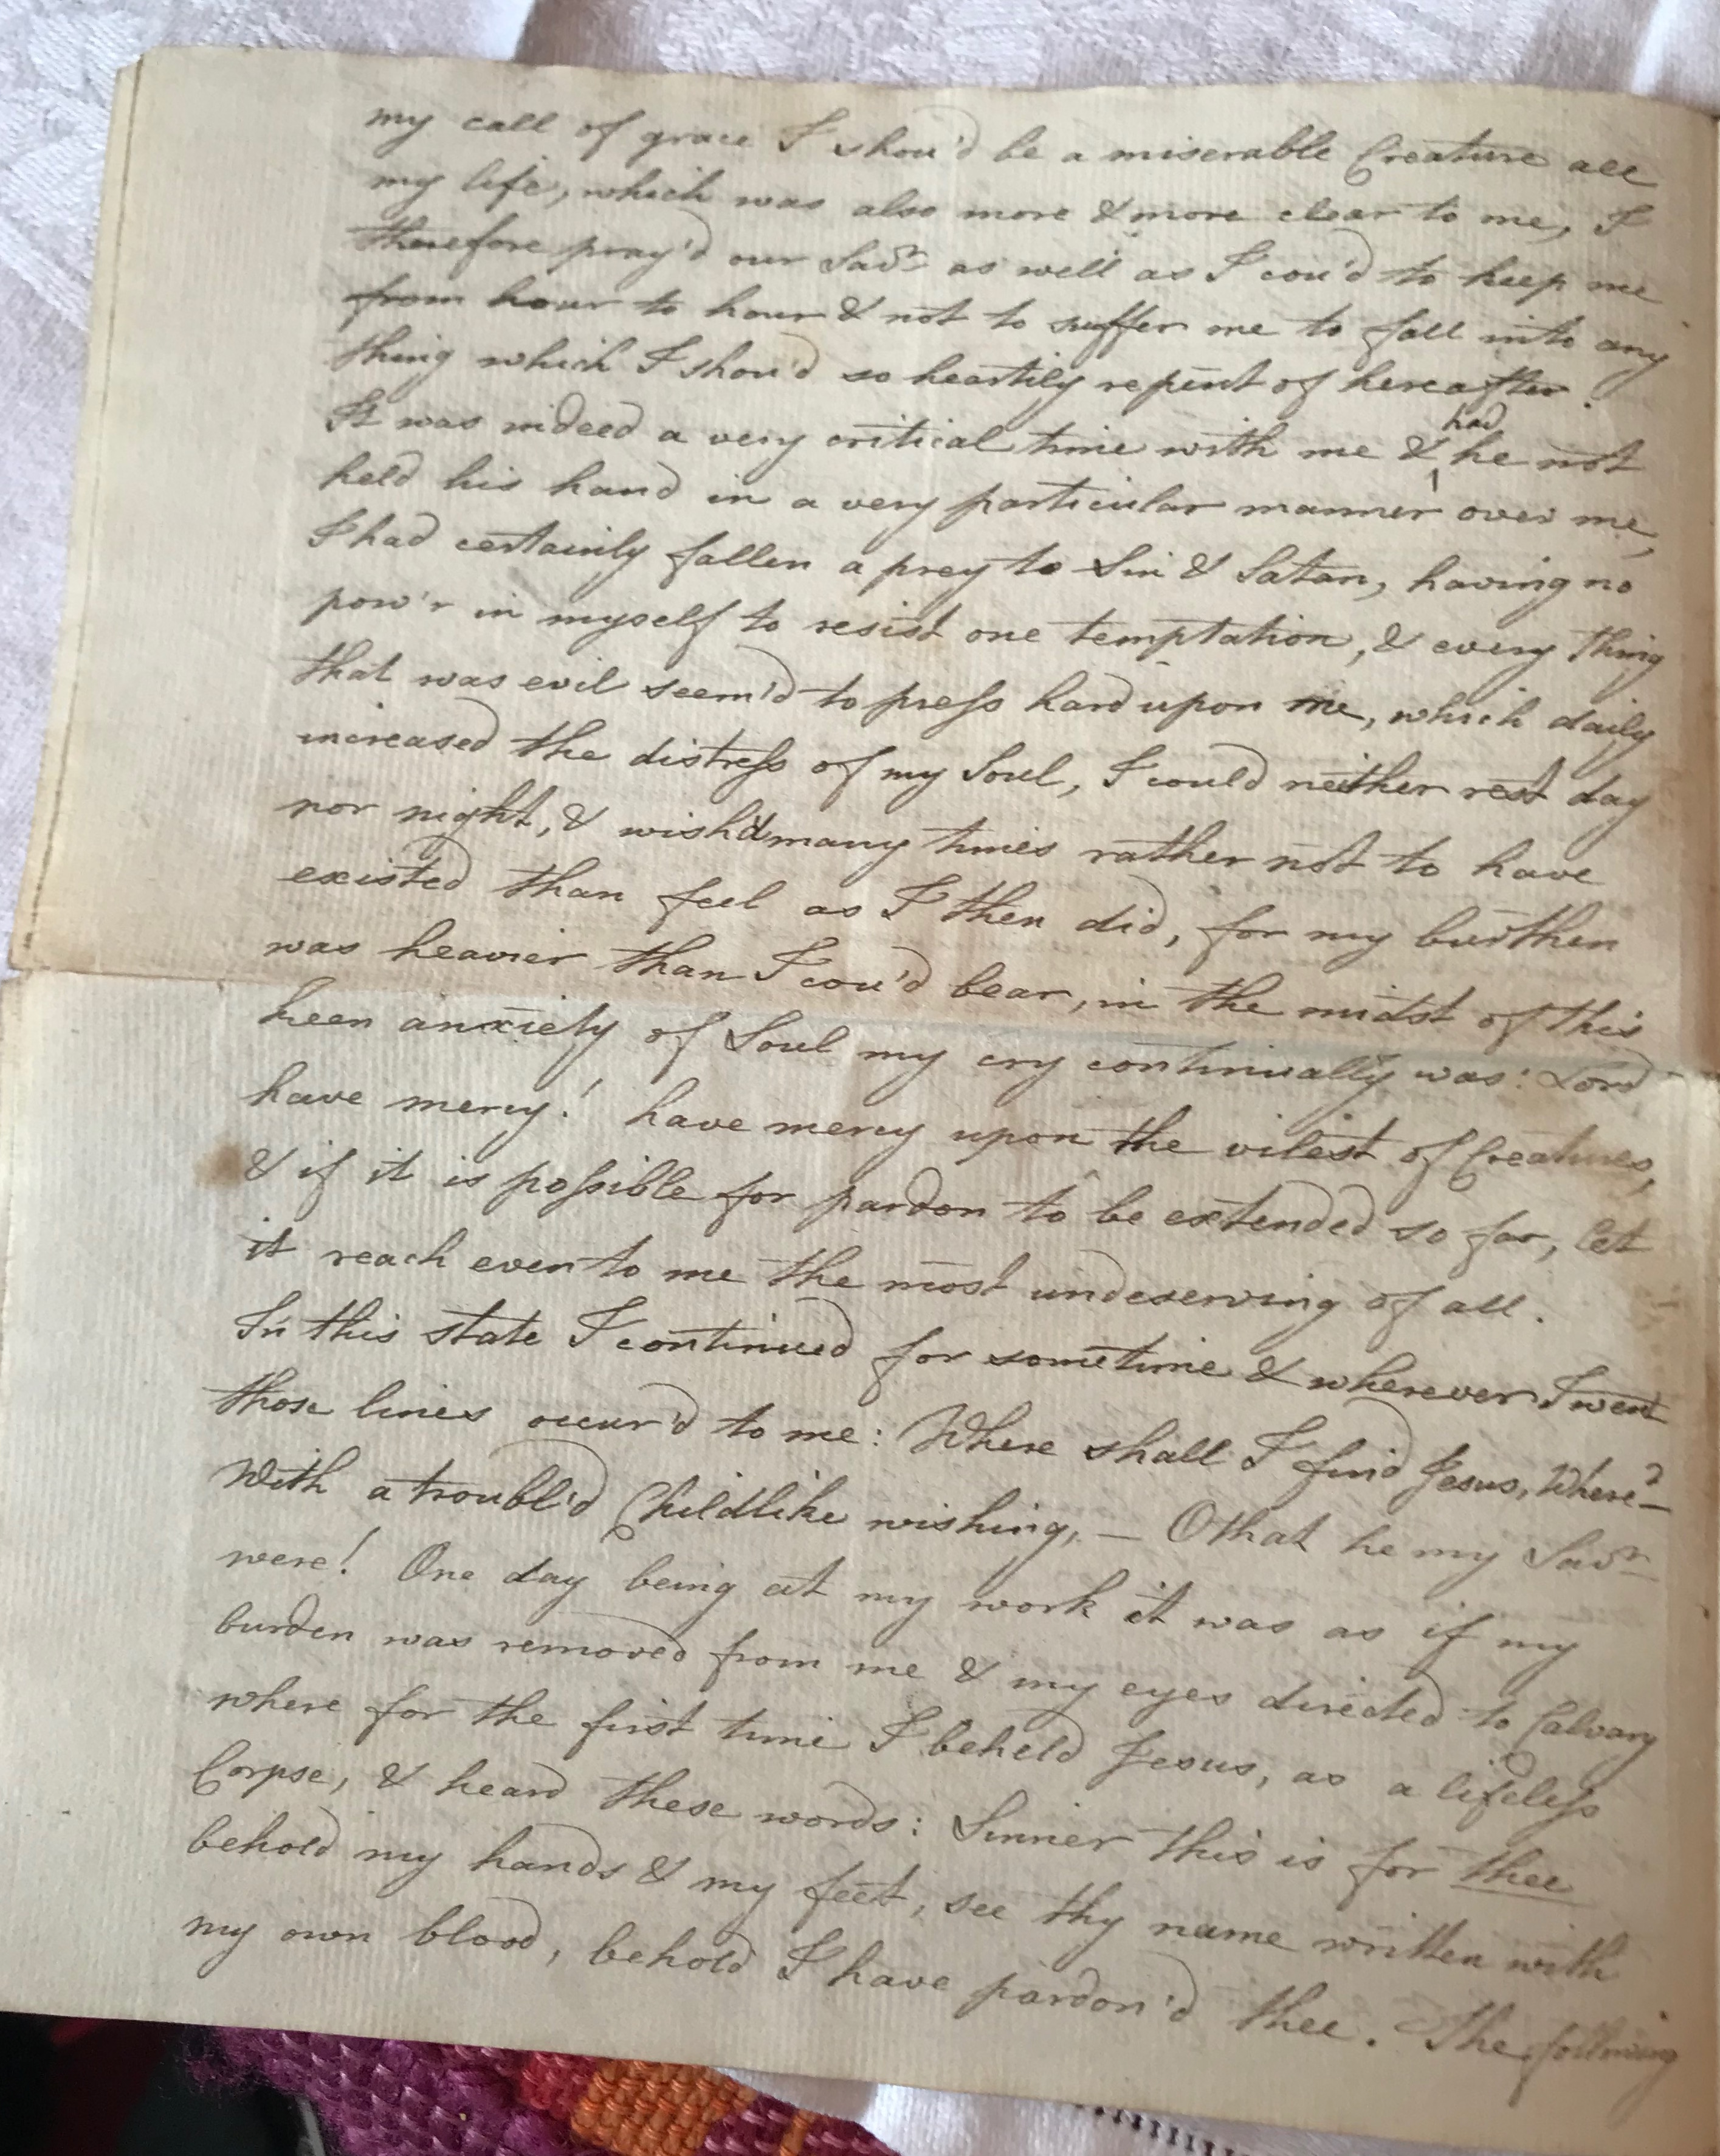 my call of grace I shou'd be a miserable Creature all
my life, which was also more & more clear to me, I
therefore pray'd our Savr as well as I cou'd to keep me
from hour to hour & not to suffer me to fall into any
thing which I shou'd so heartily repent of hereafter.
It was indeed a very critical time with me & had he not
held his hand in a very particular manner over me,
I had certainly fallen a prey to Sin & Satan, having no
pow'r in myself to resist one temptation, & every thing
that was evil seem'd to press hard upon me, which daily
increased the distress of my Soul, I could neither rest day
nor night, & wish'd many times rather not to have
existed than feel as I then did, for my burthen
was heavier than I cou'd bear, in the midst of this
keen anxiety of Soul my cry continually was: Lord
have mercy! have mercy upon the vilest of Creatures,
& if it is possible for pardon to be extended so far, let
it reach even to me the most undeserving of all.
In this state I continued for sometime & wherever I went
those lines occur'd to me: Where shall I find Jesus, Where? —
With a troubl'd Childlike wishing, — O that he my Savr
were! One day being at my work it was as if my
burden was removed from me & my eyes directed to Calvary
where for the first time I beheld Jesus, as a lifeless
Corpse, & heard these words: Sinner this is for thee
behold my hands & my feet, see thy name written with
my own blood, behold I have pardon'd thee. The following